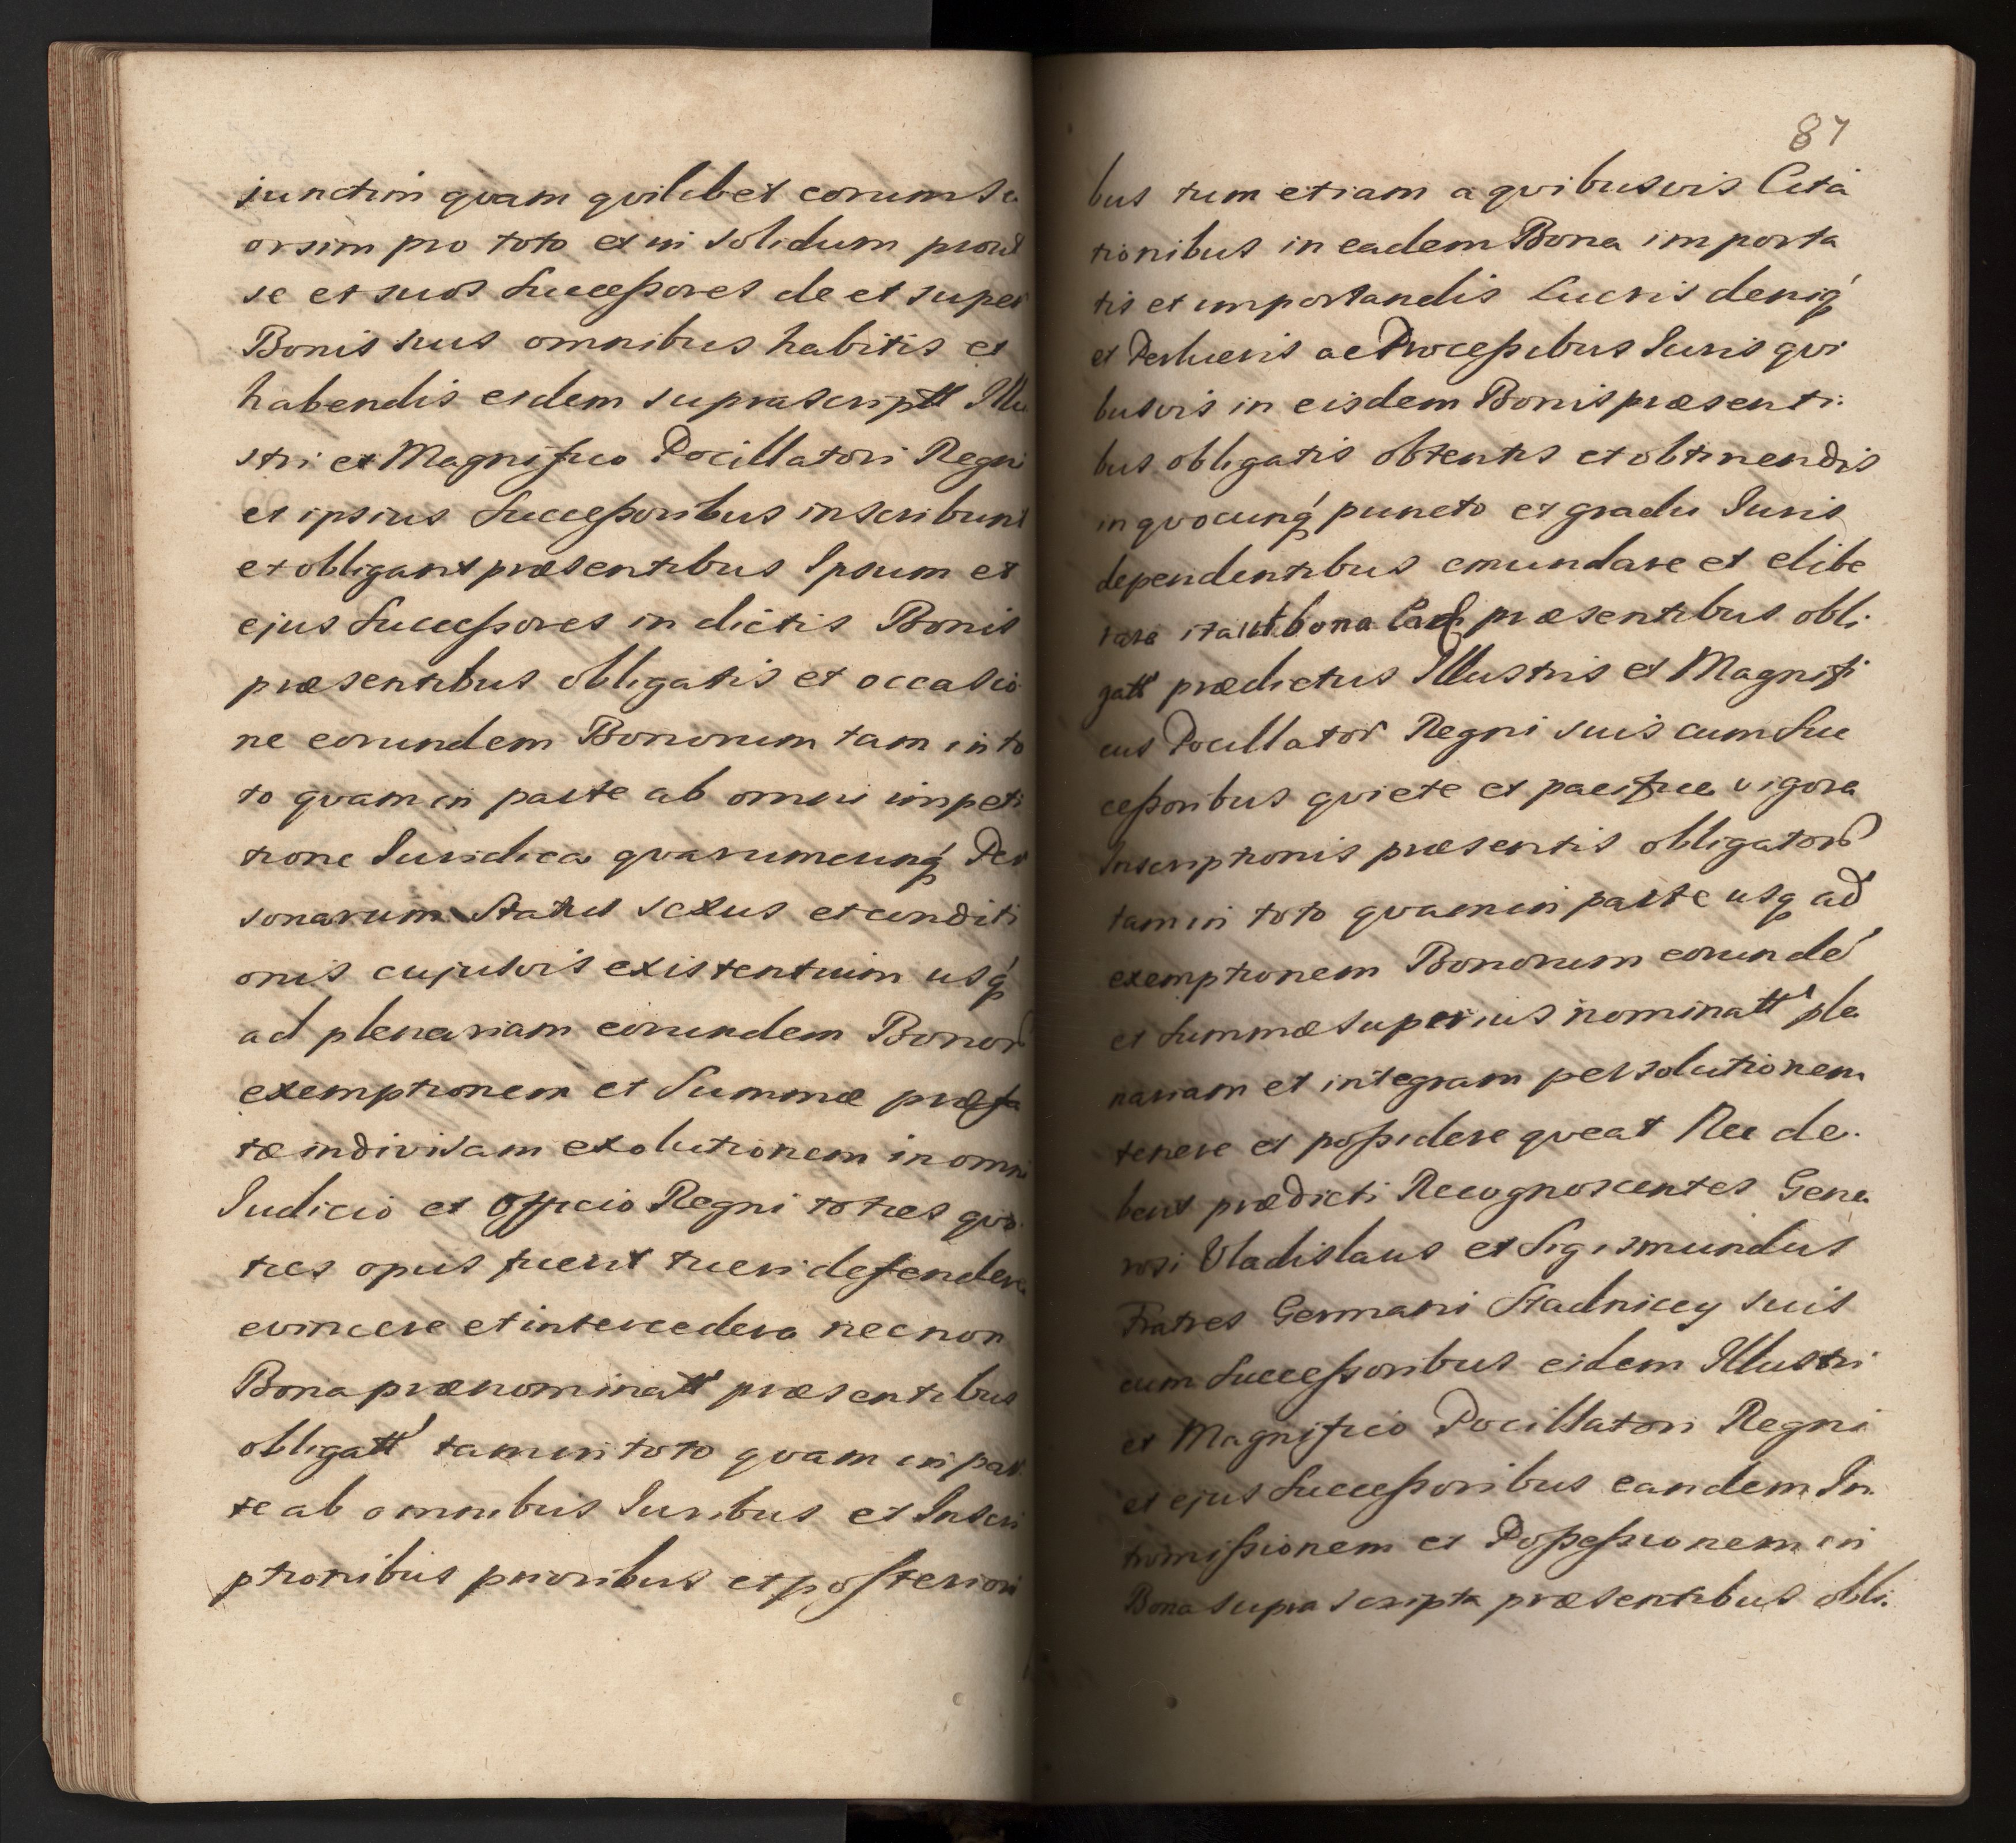 iunctim qvam qvilibet eorum se
orsim pro toto et in solidum prout
se et suos Successores de et super
Bonis suis omnibus habitis et
habendis eidem suprascriptt Illu
stri et Magnifico Pocillatori Regni
et ipsius Successoribus inscribunt
et obligant præsentibus Ipsum et
ejus Successores in dictis Bonis
præsentibus obligatis et occasio
ne eorundem Bonorum tam in to
to qvam in parte ab omni impeti
tione Iuridica qvarumcunq́ Per
sonarum Status sexus et conditi
onis cujusvis existentium usq́
ad plenariam eorundem Bonor
exemptionem et Summæ præfa
tæ indivisam exolutionem in omni
Iudicio et Officio Regni toties qvo
ties opus fuerit tueri defendere
evincere et intercedere nec non
Bona prænominatt præsentibus
obligatt tam in toto qvam in par
te ab omnibus Iuribus et Inscri
ptionibus prioribus et posteriori
87
bus tum etiam a qvibusvis Cita
tionibus in eadem Bona importa
tis et importandis Lucris deniq́
et Perlucris ac Processibus Iuris qvi
busvis in eisdem Bonis præsenti
bus obligatis obtentis et obtinendis
in qvocunq́ puncto et gradu Iuris
dependentibus emundare et elibe
rare ita ut bona præsentibus obli
gatt prædictus Illustris et Magnifi
cus Pocillator Regni suis cum Suc
cessoribus qviete et pacifice vigore
Inscriptionis præsentis obligator
tam in toto qvam in parte usq ad
exemptionem Bonorum eorundé
et Summæ superius nominatt ple
nariam et integram persolutionem
tenere et possidere qveat Nec de.
bent prædicti Recognoscentes Gene
rosi Vladislaus et Sigismundus
Fratres Germani Stadniccy suis
cum Successoribus eidem Illustri
et Magnifico Pocillatori Regni
et ejus Successoribus eandem In
tromissionem et Possessionem in
Bona supra scripta præsentibus obli.